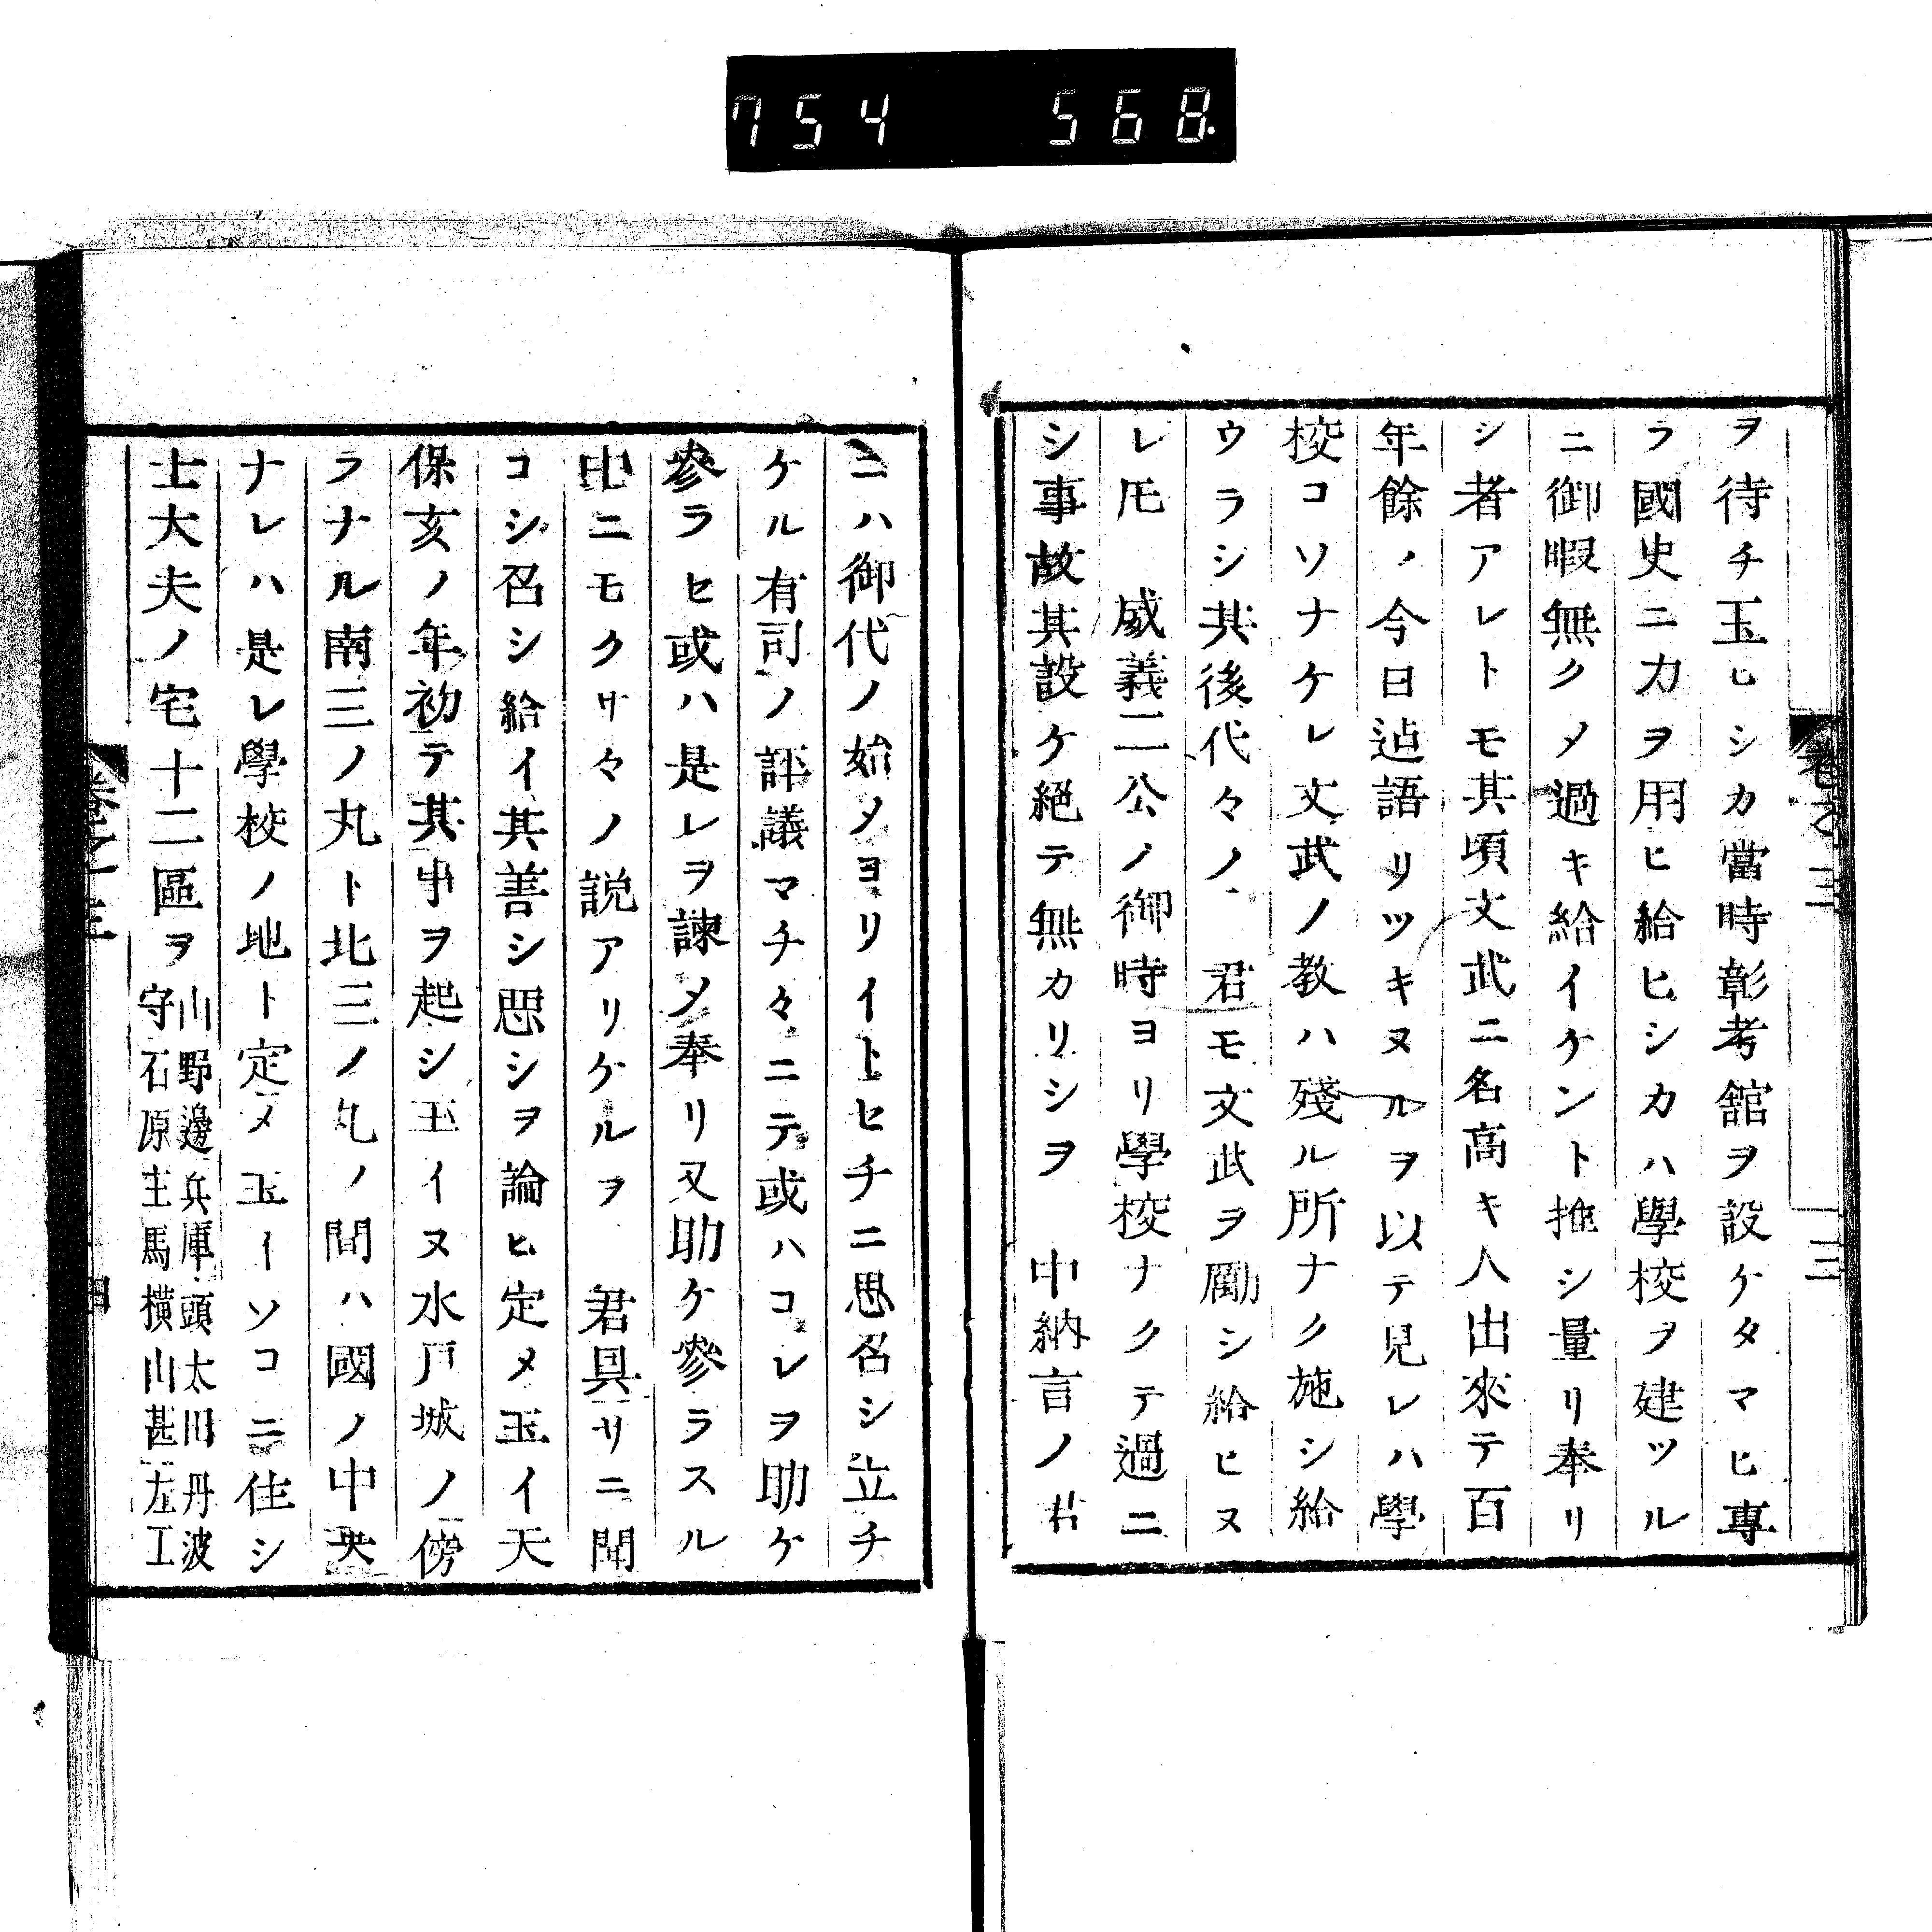 754 568.
卷之三 三
ヲ待チ玉ヒシカ當時彰考舘ヲ設ケタマヒ專
ラ國史ニ力ヲ用ヒ給ヒシカハ學校ヲ建ツル
ニ御暇無クメ過キ給イケント推シ量リ奉リ
シ者アレトモ其頃文武ニ名高キ人出來テ百
年餘ノ今日迠語リツキヌルヲ以テ見レハ學
校コソナケレ文武ノ教ハ殘ル所ナク施シ給
ウラシ其後代々ノ 君モ文武ヲ勵シ給ヒヌ
レ𪜈 威義二公ノ御時ヨリ學校ナクテ過ニ
シ事故其設ケ絶テ無カリシヲ 中納言ノ君
ニハ御代ノ始メヨリイトヒチニ思召シ立チ
ケル有司ノ評議マチ々ニテ或ハコレヲ助ケ
參ラヒ或ハ是レヲ諫メ奉リ又助ケ參ラスル
中ニモクサ々ノ説アリケルヲ 君具サニ聞
コシ召シ給イ其善シ惡シヲ論ヒ定メ玉イ天
保亥ノ年初テ其事ヲ起シ玉イヌ水戸城ノ傍
ラナル南三ノ丸ト北三ノ丸ノ間ハ國ノ中央
ナレハ是レ學校ノ地ト定メ玉イソコニ住シ
士大夫ノ宅十二區ヲ
山野邊兵庫頭太田丹波
守石原主馬横山甚左工
卷之三 四